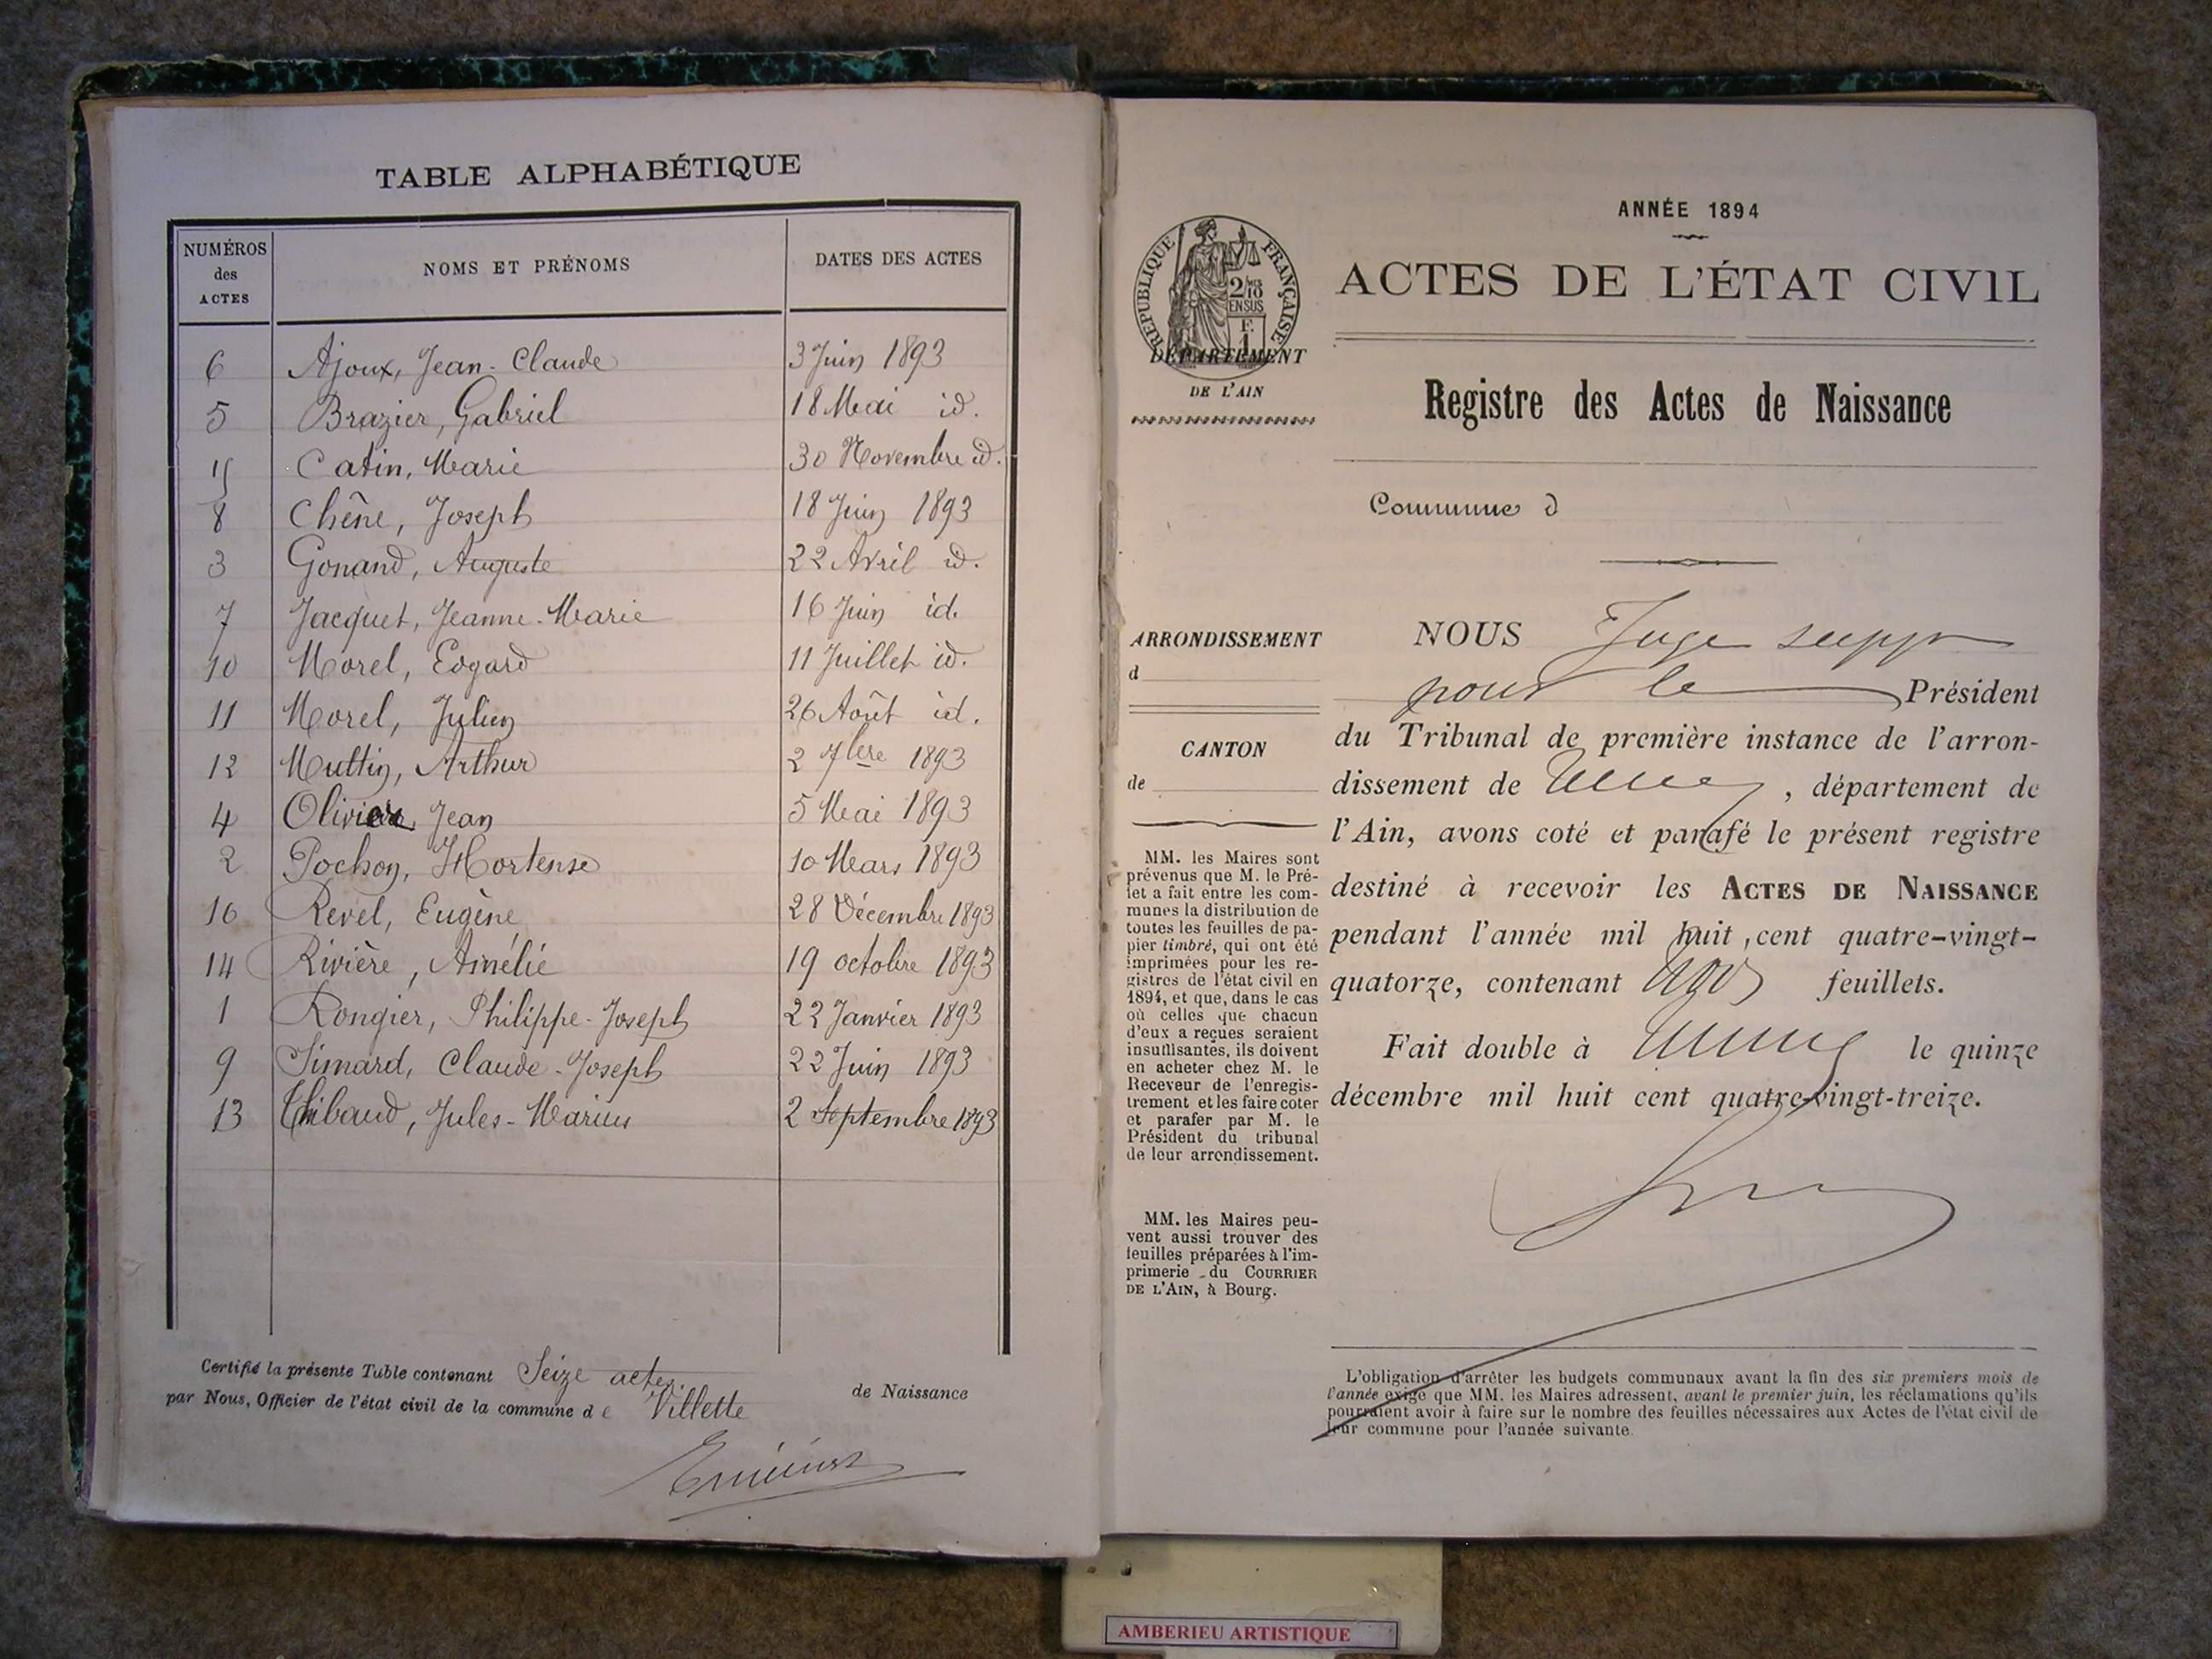 TABLE ALPHABÉTIQUE
NUMÉROS des ACTES
NOMS ET PRÉNOMS
DATES DES ACTES
6 Ajoux, Jean-Claude 3 Juin 1893
5 Brazier, Gabriel 18 Mai id.
15 Catin, Marie 30 Novembre id.
8 Chêne, Joseph 18 Juin 1893
3 Gonand, Auguste 22 Avril id.
7 Jacquet, Jeanne-Marie 16 Juin id.
10 Morel, Edgard 11 Juillet id.
11 Morel, Julien 26 Août id.
12 Muttin, Arthur 2 7bre 1893
4 Olivier, Jean 5 Mai 1893
2 Pochon, Hortense 10 Mars 1893
16 Revel, Eugène 28 Décembre 1893
14 Rivière, Amélie 19 octobre 1893
1 Rongier, Philippe-Joseph 22 Janvier 1893
9 Simard, Claude-Joseph 22 Juin 1893
13 Thibaud, Jules-Marius 2 Septembre 1893
Certifié la présente Table contenant Seize actes de Naissance
par Nous, Officier de l'état civil de la commune de Villette
RÉPUBLIQUE FRANÇAISE
2/10
EN SUS
F.
1
DÉPARTEMENT
DE L'AIN
ARRONDISSEMENT
d
CANTON
de
MM. les Maires sont
prévenus que M. le Pré-
fet a fait entre les com-
munes la distribution de
toutes les feuilles de pa-
pier timbré, qui ont été
imprimées pour les re-
gistres de l'état civil en
1894, et que, dans le cas
où celles que chacun
d'eux a reçues seraient
insuffisantes, ils doivent
en acheter chez M. le
Receveur de l'enregis-
trement et les faire coter
et parafer par M. le
Président du tribunal
de leur arrondissement.
MM. les Maires peu-
vent aussi trouver des
feuilles préparées à l'im-
primerie du COURRIER
DE L'AIN, à Bourg.
ANNÉE 1894
ACTES DE L'ÉTAT CIVIL
Registre des Actes de Naissance
Commune d
NOUS Juge supp
pour le Président
du Tribunal de première instance de l'arron-
dissement de , département de
l'Ain, avons coté et parafé le présent registre
destiné à recevoir les ACTES DE NAISSANCE
pendant l'année mil huit cent quatre-vingt-
quatorze, contenant feuillets.
Fait double à le quinze
décembre mil huit cent quatre-vingt-treize.
L'obligation d'arrêter les budgets communaux avant la fin des six premiers mois de
l'année exige que MM. les Maires adressent, avant le premier juin, les réclamations qu'ils
pourraient avoir à faire sur le nombre des feuilles nécessaires aux Actes de l'état civil de
leur commune pour l'année suivante.
AMBERIEU ARTISTIQUE